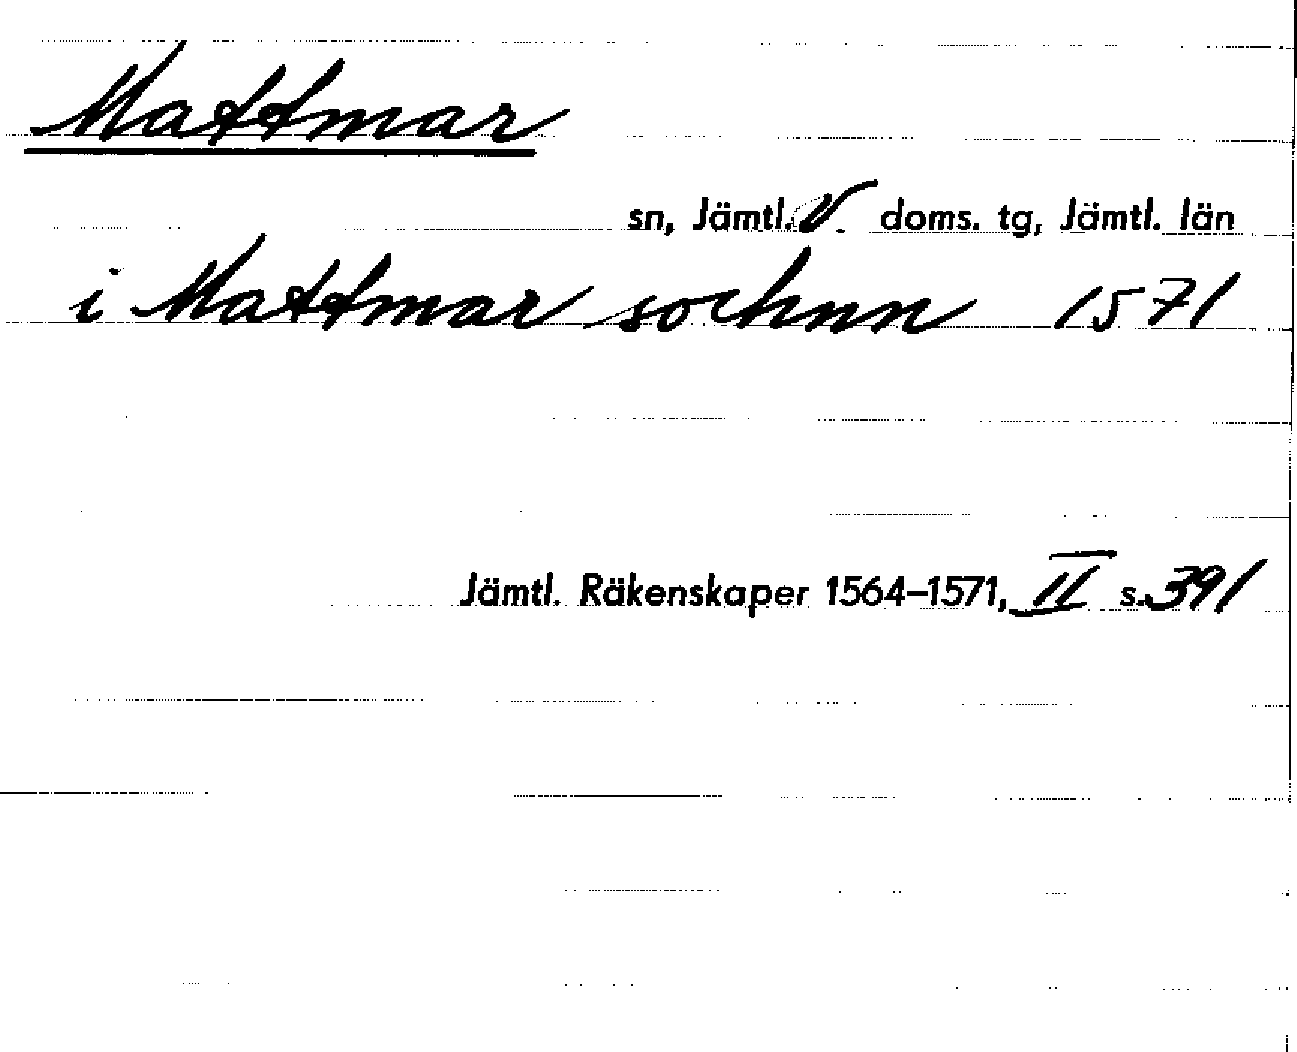 Mattmar
sn, Jämtl. V. doms. tg, Jämtl. län
i Mattmar sochnn 1571
Jämtl. Räkenskaper 1564–1571, II s. 391